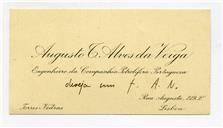 Augusto C. Alves da Veiga
Engenheiro da Companhia Petrolifera Portuguesa
deseja um F. A. N.
Rua Augusta, 219, 2º
Torres-Vedras Lisboa